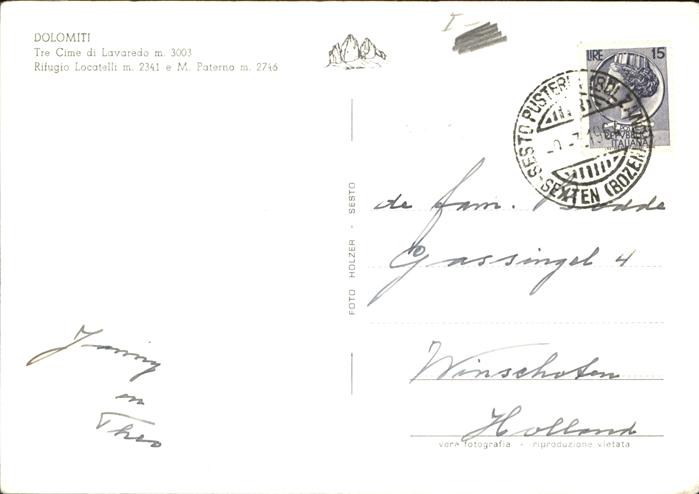 DOLOMITI
Tre Cime di Lavaredo m. 3003
Rifugio Locatelli m. 2341 e M. Paterno m. 2746
I-
LIRE 15
ITALIANA
SESTO PUSTERIA (BOLZANO)
SEXTEN (BOZEN)
de fam.
Gassingel 4
Winschoten
Holland
FOTO HOLZER - SESTO
en
Theo
vera fotografia - riproduzione vietata